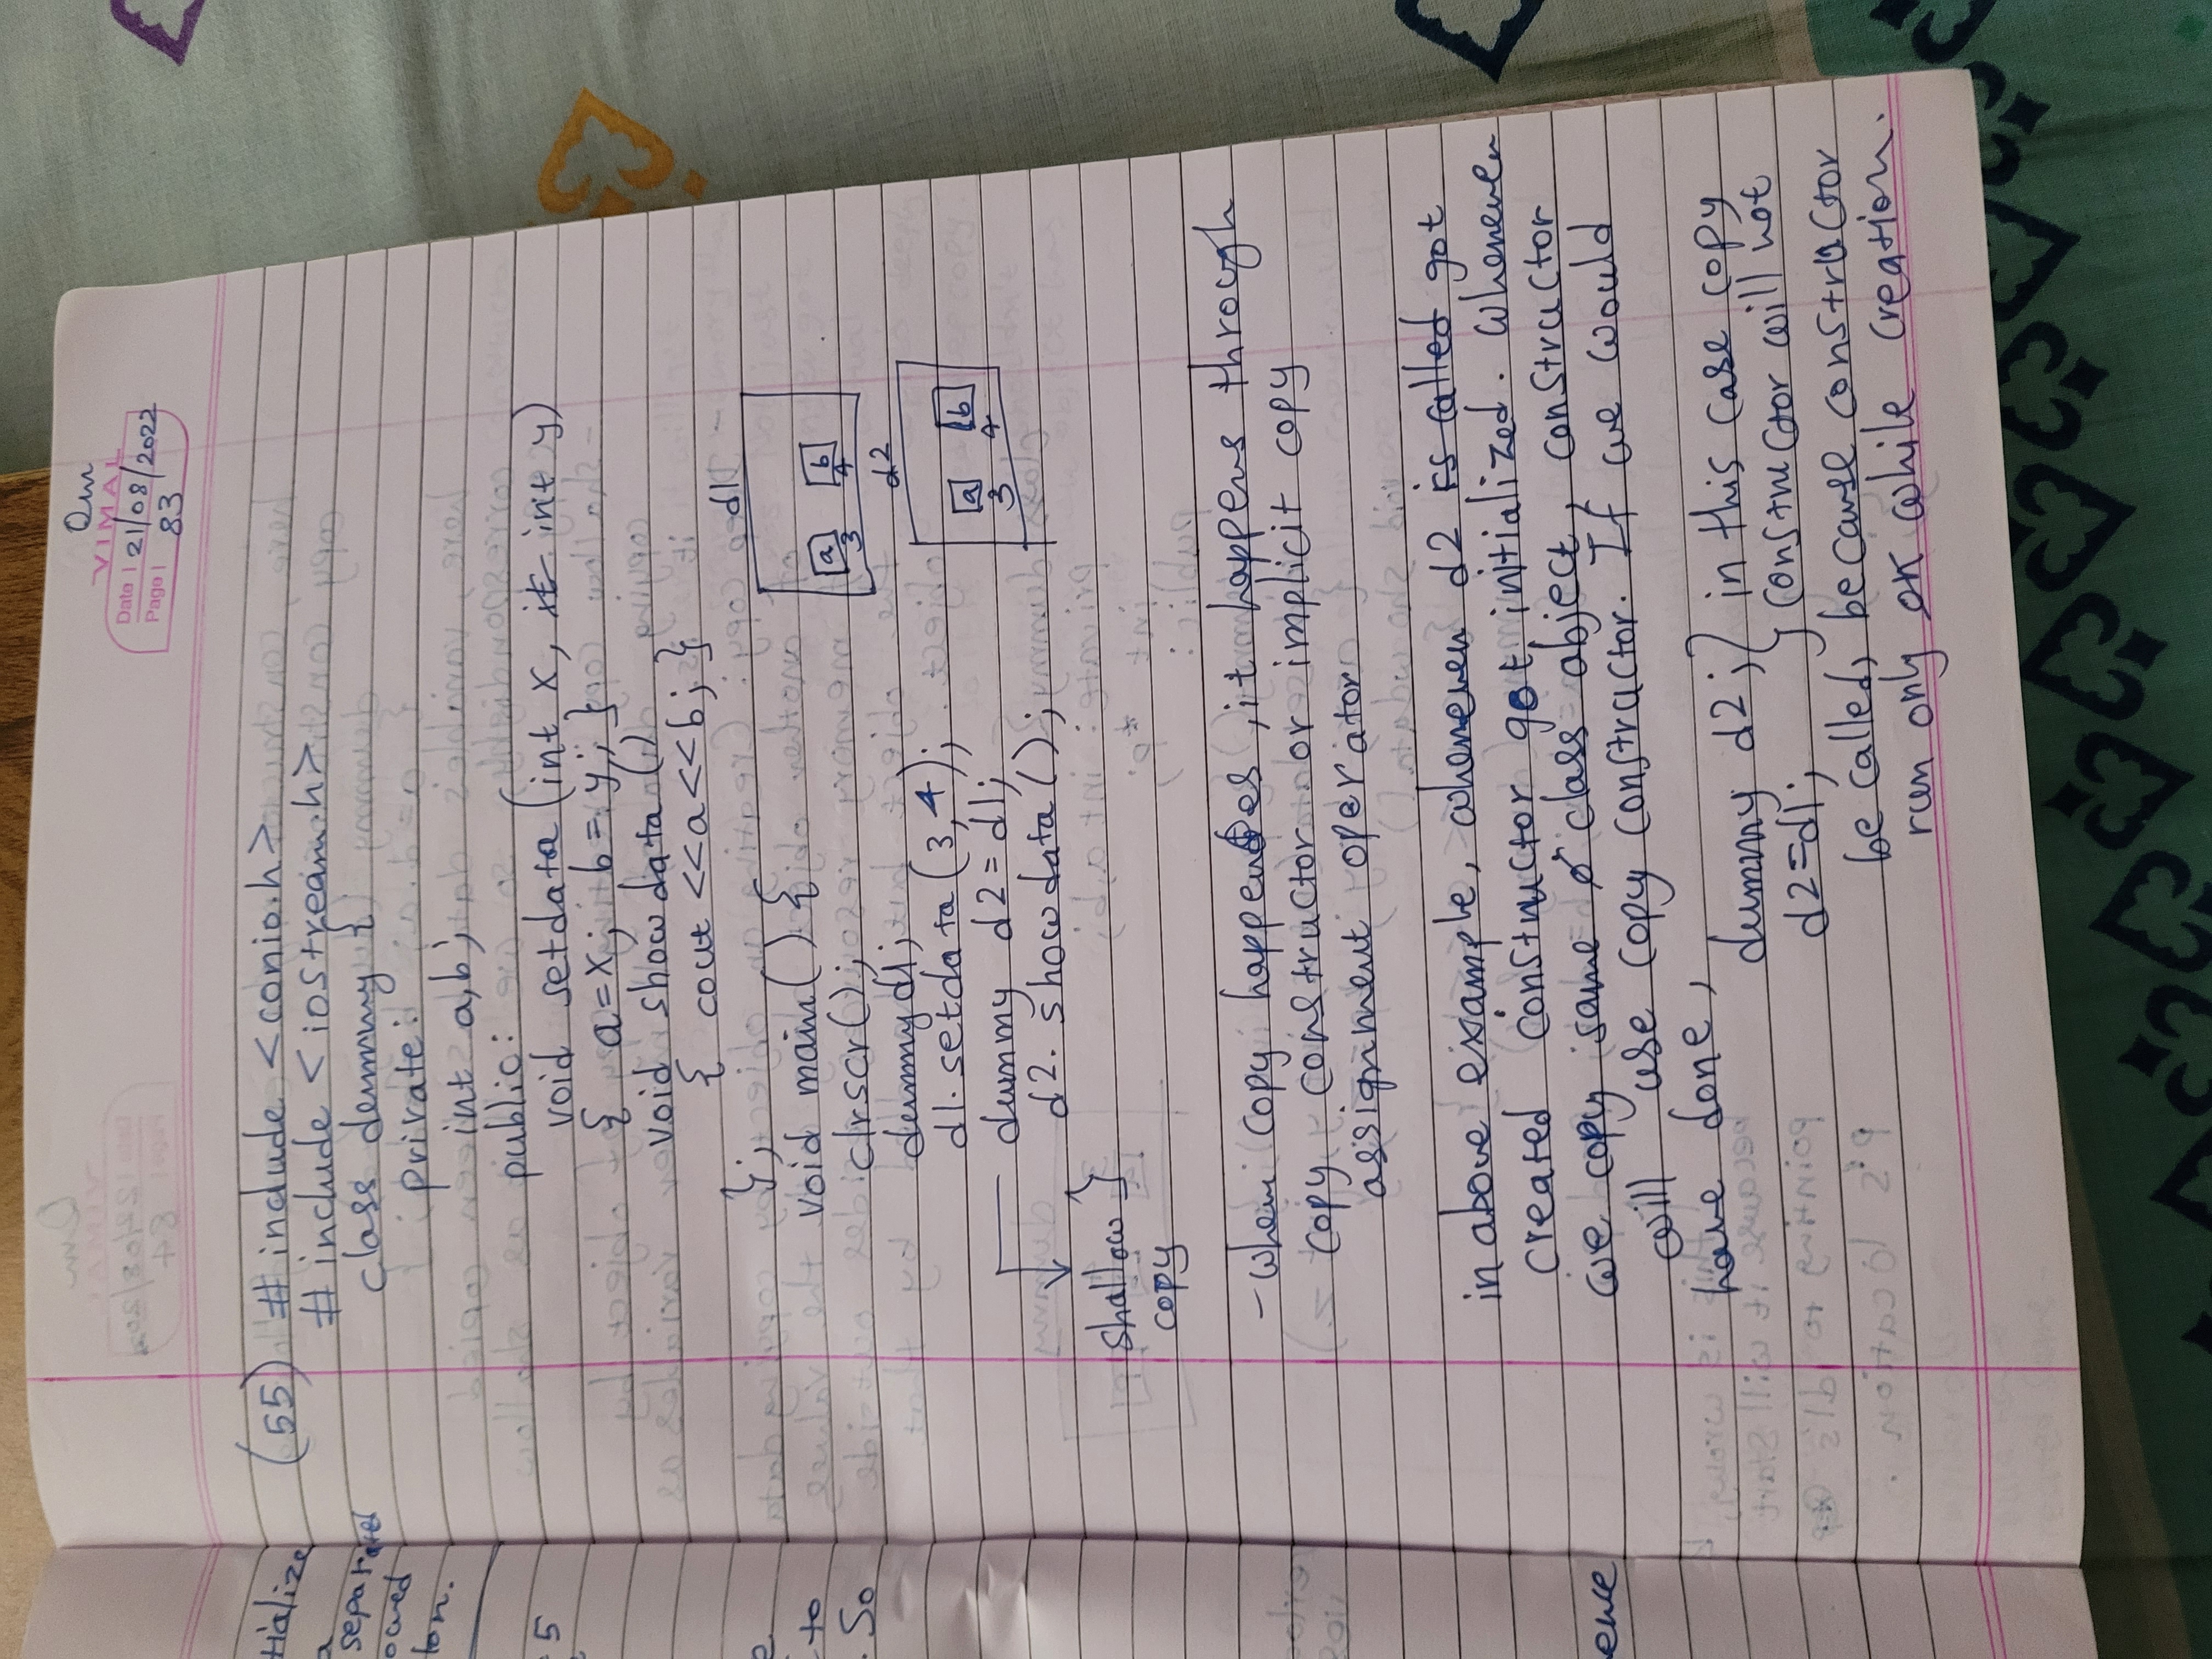 Om
VIMAL
Date 21/08/2022
Page 83
(55) # include <conio.h>
# include <iostream.h>
class dummy {
private:
int a,b;
public:
void setdata (int x, it int y)
{ a=x; b=y; }
void showdata ()
{ cout <<a<<b; }
};
void main() {
clrscr();
dummy d1;
d1.setdata (3,4);
dummy d2=d1;
d2. showdata ();
}
shallow
copy
d1
a b
3 4
d2
a b
3 4
- when copy happendes, it happens through
copy constructor or implicit copy
assignment operator
in above example, whenever d2 is called got
created constructor got initialized. Whenever
we copy same class object, constructor
will use copy constructor. If we would
have done,
dummy d2; } in this case copy
d2=d1; constructor will not
be called, because constructor
run only on while creation.
tialize
separated
ocued
ton.
5
e
to
. So
ence